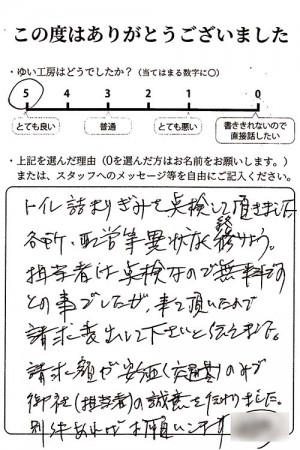 この度はありがとうございました
・ゆい工房はどうでしたか？（当てはまる数字に○）
5 4 3 2 1 0
とても良い 普通 とても悪い 書ききれないので直接話したい
・上記を選んだ理由（0を選んだ方はお名前をお願いします。）
または、スタッフへのメッセージ等を自由にご記入ください。
トイレ詰まりぎみを点検して頂きました
各所・配管等異状なく終りました。
担当者は点検なので無料だ
との事でしたが、来て頂いたので
請求書出して下さいと伝えました。
請求額が安価（交通費）のみで
御社（担当者）の誠意を
別件あればお願いします